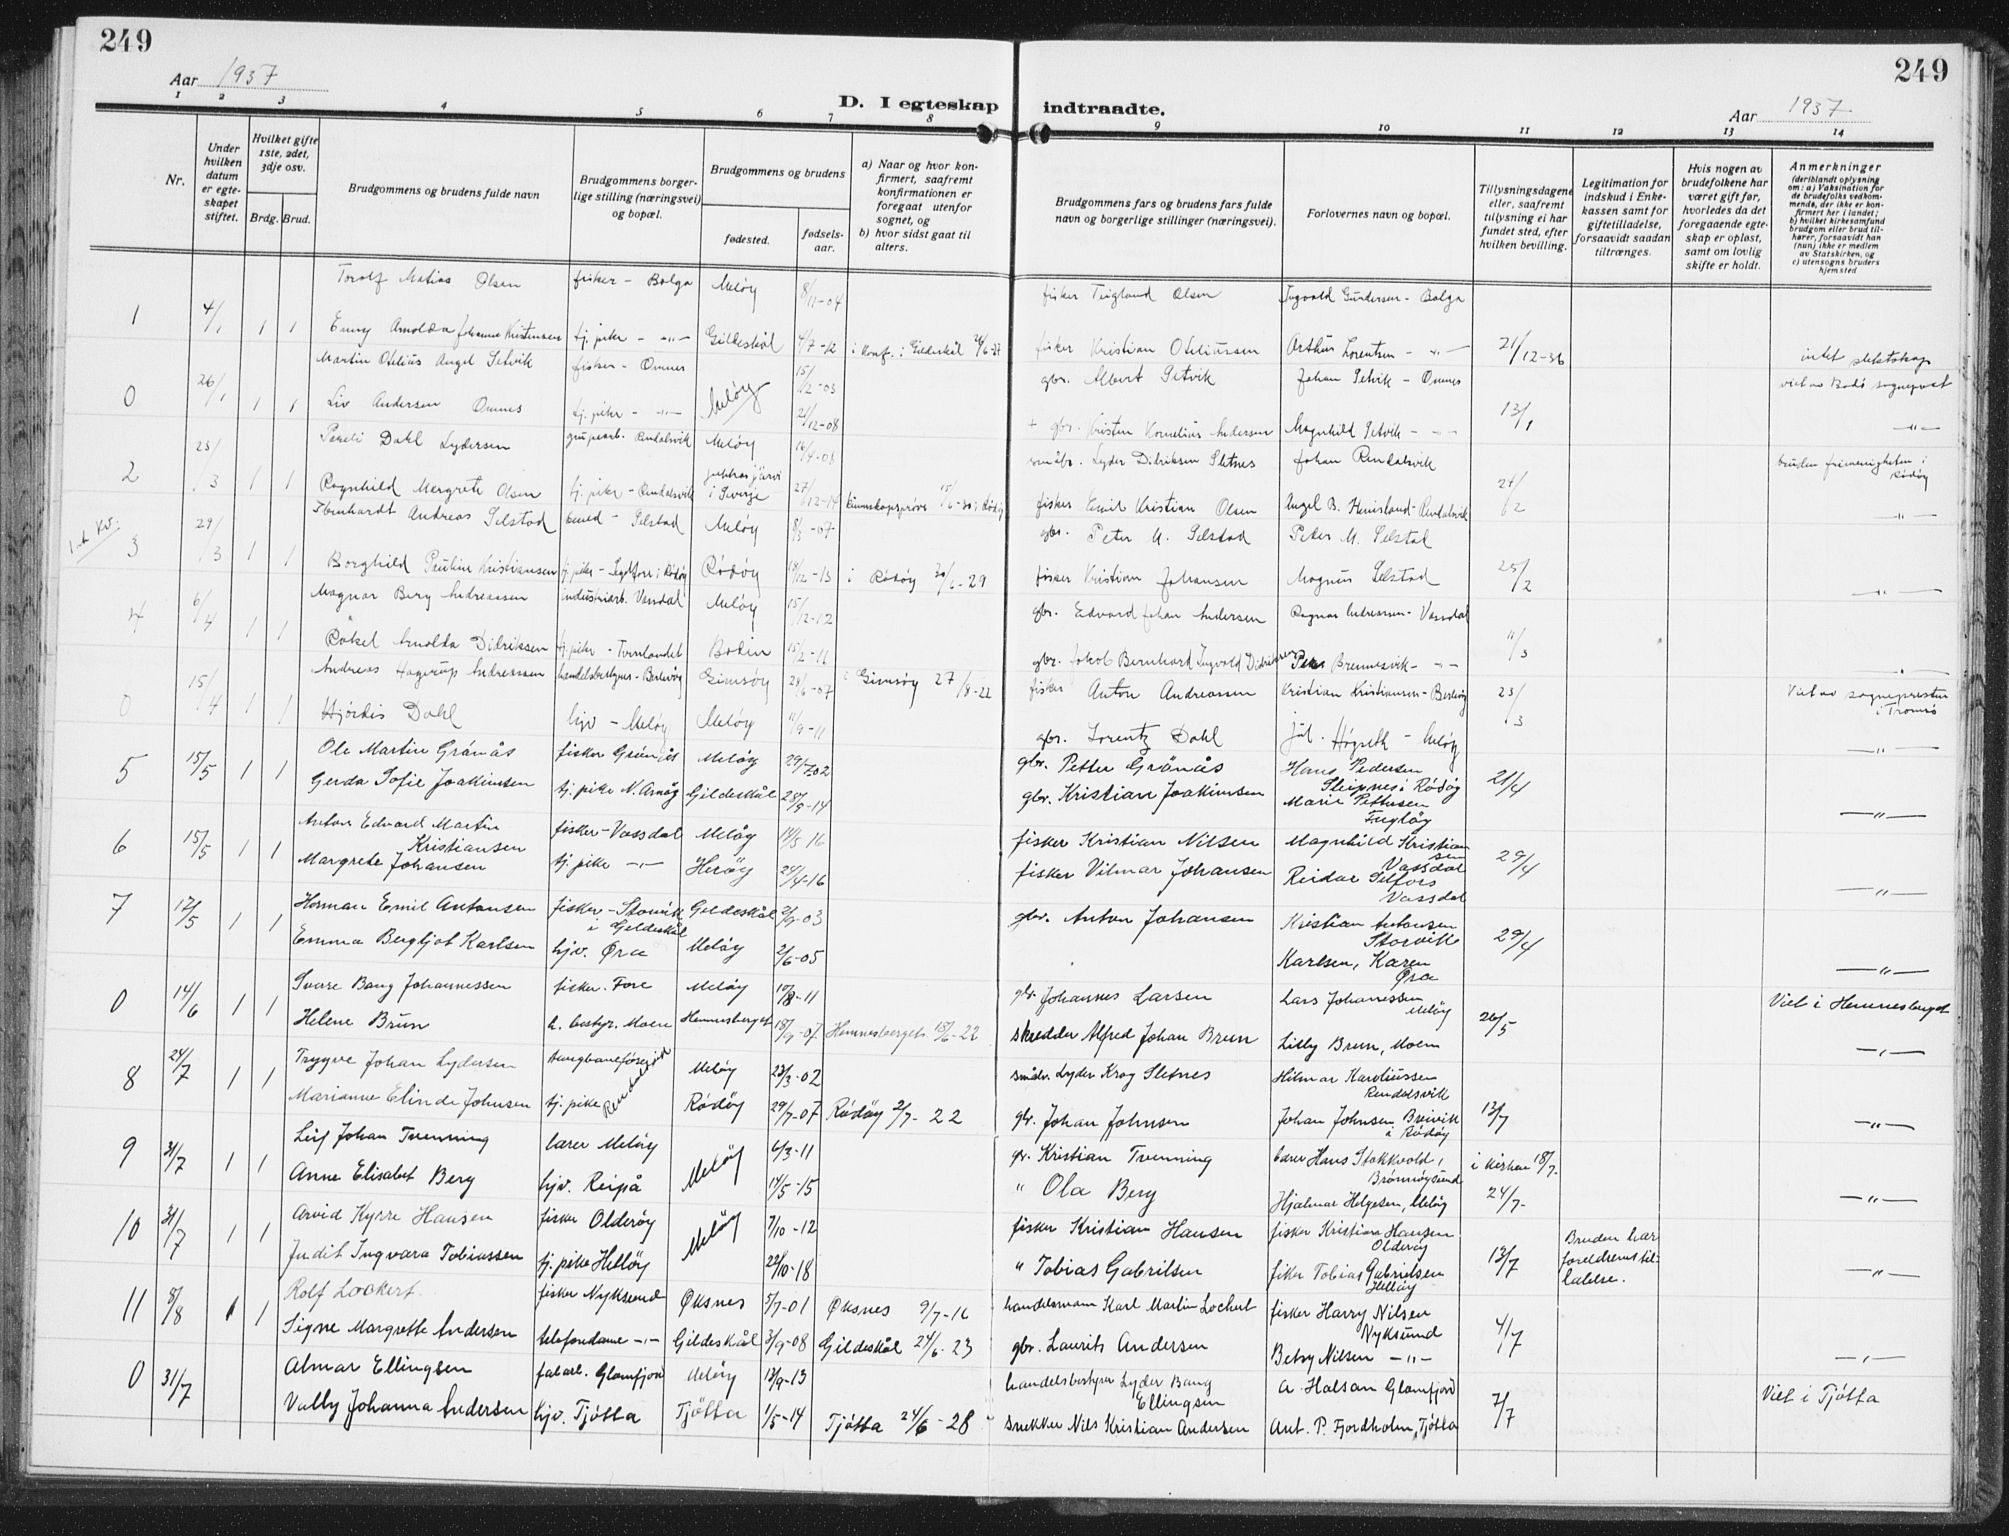 249
249
Aar 1937
D. I egteskap indtraadte.
Aar 1937
1 2 3 4 5 6 7 8 9 10 11 12 13 14
Nr.
Under hvilken datum er egteskapet stiftet.
Hvilket gifte 1ste, 2det, 3dje osv.
Brdg. Brud.
Brudgommens og brudens fulde navn
Brudgommens borgerlige stilling (næringsvei) og bopæl.
Brudgommens og brudens
fødested.
fødselsaar.
a) Naar og hvor konfirmert, saafremt konfirmationen er foregaat utenfor sognet, og
b) hvor sidst gaat til alters.
Brudgommens fars og brudens fars fulde navn og borgerlige stillinger (næringsvei).
Forlovernes navn og bopæl.
Tillysningsdagene eller, saafremt tillysning ei har fundet sted, efter hvilken bevilling.
Legitimation for indskud i Enkekassen samt for giftetilladelse, forsaavidt saadan tiltrænges.
Hvis nogen av brudefolkene har været gift før, hvorledes da det foregaaende egteskap er opløst, samt om lovlig skifte er holdt.
Anmerkninger (deriblandt oplysning om: a) Vaksination for de brudefolks vedkommende, der ikke er konfirmert her i landet; b) hvilket kirkesamfund brudgom eller brud tilhører, forsaavidt han (hun) ikke er medlem av Statskirken, og c) utensogns bruders hjemsted
Torolf Matias Olsen fisker - Bolga Meløy 8/11-04 fisker Olsen Ingvald Gundersen - Bolga
1 4/1 1 1 Enny Arnolda Johanne Kristensen tj. pike - " - Gildeskål 4/7-12 i Gildeskål fisker Kristian Oteliussen Arthur Lorentsen - " - 21/12-36 intet slektskap
Martin Otelius Angel Selvik fisker - Ømnes 15/12-03 gbr. Albert Setvik Johan Setvik - Ømnes viet av Bodø sogneprest
0 26/1 1 1 Liv Andersen Ømnes tj. pike - " - Meløy 21/12-08 + gbr. Kristen Kornelius Andersen Magnhild Setvik - " - 13/1 - " -
Pareli Dahl Lydersen Rendalsvik Meløy småbr. Lyder Didriksen Sletnes Johan Rendalsvik bruden frimenigheten i Rødøy
2 1 1 Ragnhild Margrete Olsen tj. pike - Rendalsvik i Sverige 27/12-14 kunnskapsprøve 15/6-30 i Rødøy fisker Emil Kristian Olsen Rendalsvik 24/2 - " -
Andreas Selstad Selstad Meløy 8/3-07 gbr. Peter M. Selstad Peter M. Selstad
3 29/3 1 1 Borghild Pauline Kristiansen tj. pike - i Rødøy Rødøy i Rødøy 29 fisker Kristian Johansen Magnus Selstad 25/2 - " -
Magnar Berg Andreassen industriarb. Vassdal Meløy 15/12-12 gbr. Edvard Johan Andersen Ragnar Andreassen - Vassdal
4 6/4 1 1 Rakel Arnolda Didriksen tj. pike - Bodin 15/2-11 gbr. Jakob Bernhard Ingvald Didriksen Brennesvik - " - 11/3
Andreas Hagerup Andreassen handelsbestyrer - Berlevåg Gimsøy 28/6-07 i Gimsøy 27/8-22 fisker Anton Andreassen Kristian Kristiansen - Berlevåg Viet av sognepresten i Tromsø
0 15/4 1 1 Hjørdis Dahl hjv - Meløy Meløy 11/9-11 gbr. Lorentz Dahl Høgseth - Meløy 23/3 - " -
Ole Martin Grånås fisker Grånås Meløy 29/1-02 gbr. Petter Grönås Hans Pedersen Sleipnes i Rødøy
5 15/5 1 1 Gerda Sofie Joakimsen tj. pike N. Arnøy Gildeskål 28/9-14 gbr. Kristian Joakimsen Marie Pettersen Fugløy 21/4 - " -
Anton Edvard Martin Kristiansen fisker - Vassdal Meløy 14/5-16 fisker Kristian Nilsen Magnhild Kristiansen Vassdal
6 15/5 1 1 Margrete Johansen tj. pike - " - Herøy 24/4-16 fisker Vilmar Johansen Reidar Selfors Vassdal 29/4 - " -
Herman Emil Antonsen fisker - Storvik i Gildeskål Gildeskål 2/9-03 gbr. Anton Johansen Kristian Antonsen Storvik
7 17/5 1 1 Emma Bergljot Karlsen hjv. Øra Meløy 2/6-05 Karlsen, Karen Øra 29/4 - " -
Sverre Bang Johannessen fisker. Fore Meløy 10/8-11 gbr. Johannes Larsen Lars Johannessen Meløy Viet i Hemnesberget
0 14/6 1 1 Helene Brun h. bestyr. Moen Hemnesberget 18/9-07 Hemnesberget 18/6-22 skredder Alfred Johan Brun Lilly Brun, Moen 26/5 - " -
Trygve Johan Lydersen Rendalsvik Meløy 23/3-02 småbr. Lyder Krog Sletnes Hilmar Karoliussen Rendalsvik
8 24/7 1 1 Marianne Elinde Johnsen tj. pike Rødøy 29/7-07 Rødøy 2/7-22 gbr. Johan Johnsen Johan Johnsen Breivik i Rødøy 13/7 - " -
Leif Johan Tvenning lærer Meløy 6/3-11 gbr. Kristian Tvenning lærer Hans Stokkvold, Brønnøysund i kirken 18/7-
9 31/7 1 1 Anne Elisabet Berg hjv. Reipå Meløy 14/5-15 " Ola Berg Hjalmar Helgesen, Meløy 24/7- - " -
Arvid Kyrre Hansen fisker Olderøy 7/10-12 fisker Kristian Hansen fisker Kristian Hansen Olderøy Bruden har foreldrenes tillatelse.
10 31/7 1 1 Judit Ingvara Tobiassen tj. pike Helløy Meløy 22/10-18 " Tobias Gabrilsen fisker Tobias Gabrielsen Helløy 13/7 - " -
Rolf Lockert fisker Nyksund Øksnes 5/7-01 Øksnes 9/7-16 handelsmann Karl Martin Lockert fisker Harry Nilsen Nyksund
11 8/8 1 1 Signe Margrethe Andersen telefondame - " - Gildeskål 3/9-08 Gildeskål 24/6-23 gbr. Laurits Andersen Betsy Nilsen - " - 4/7 - " -
Almar Ellingsen fabarb. Glomfjord Meløy 13/9-13 handelsbestyrer Lyder Bang Ellingsen A. Halsan Glomfjord Viet i Tjøtta
0 31/7 Vally Johanna Andersen hjv. Tjøtta Tjøtta 1/5-14 Tjøtta 24/6-28 snekker Nils Kristian Andersen Ant. P. Fjordholm, Tjøtta 7/7